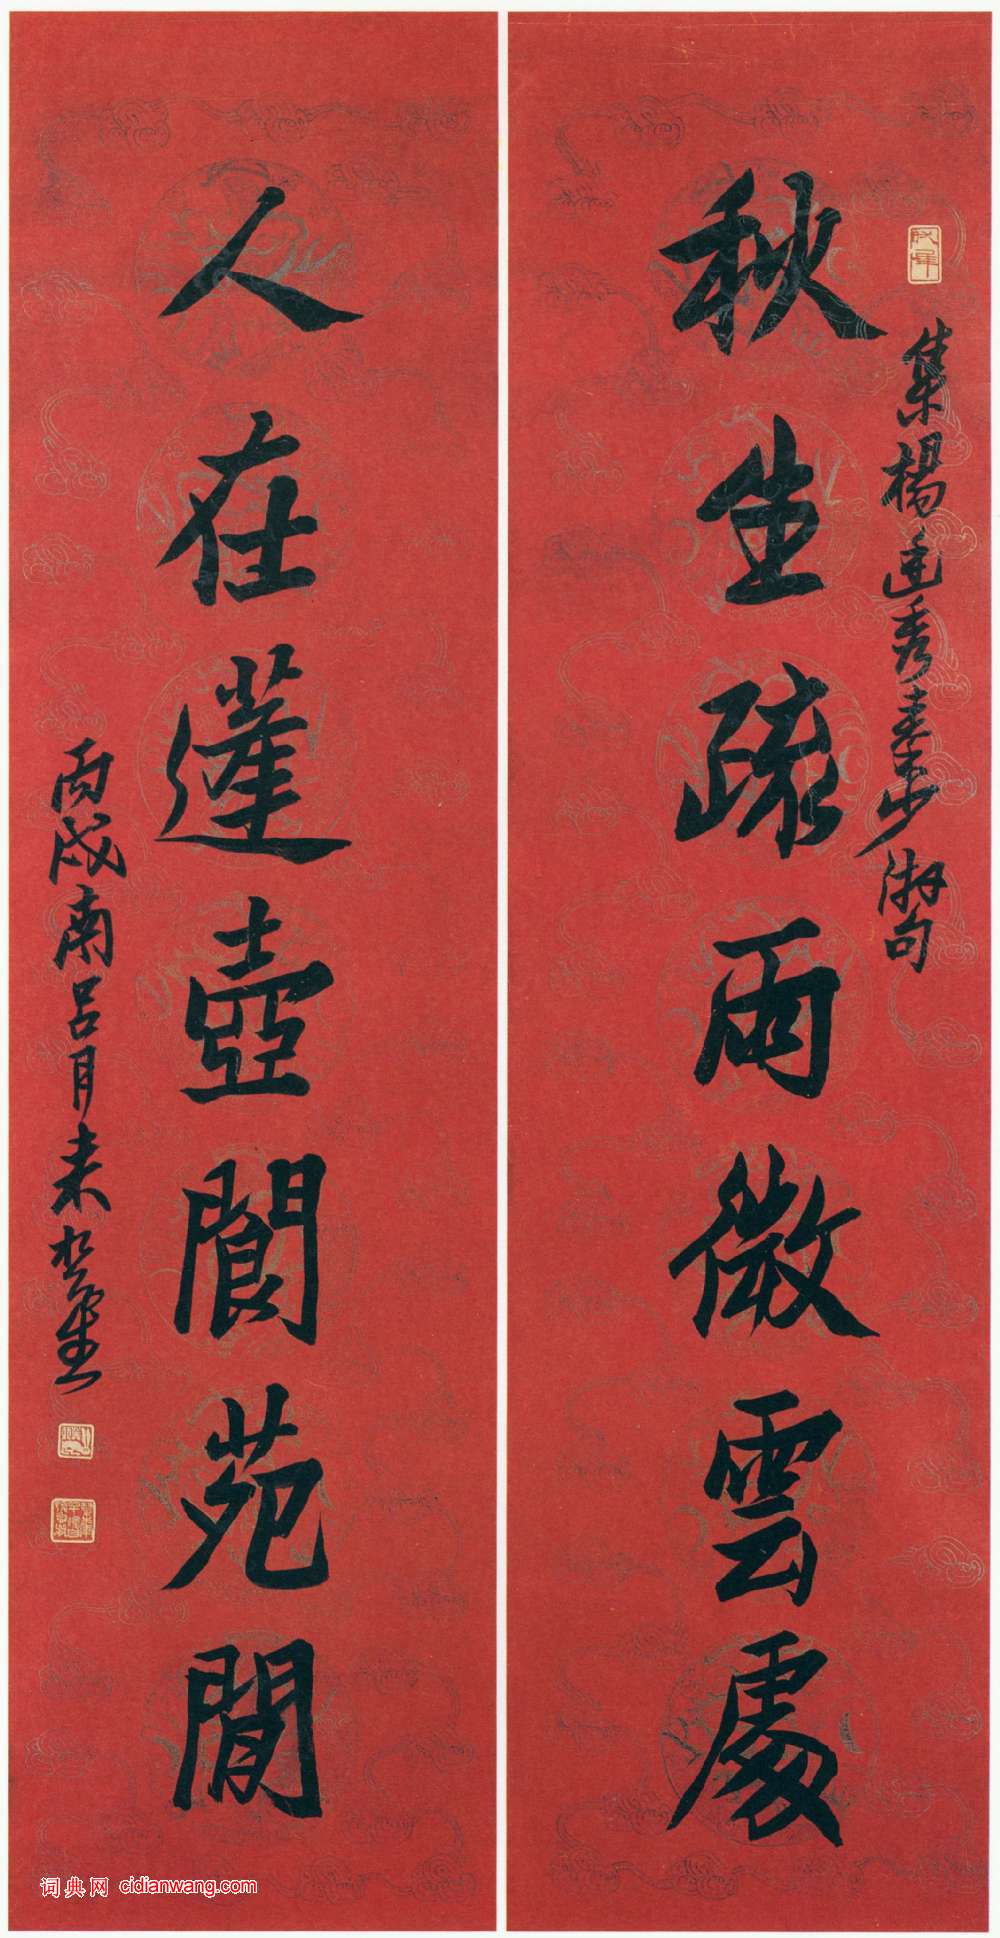 集楊廷秀秦少游句
秋生疏雨微雲處
人在蓬壺閬苑閒
丙戌南呂月来楚生
词典网 cidianwang.com